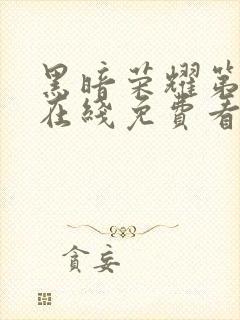 黑暗荣耀第
在线免费看
贪妄